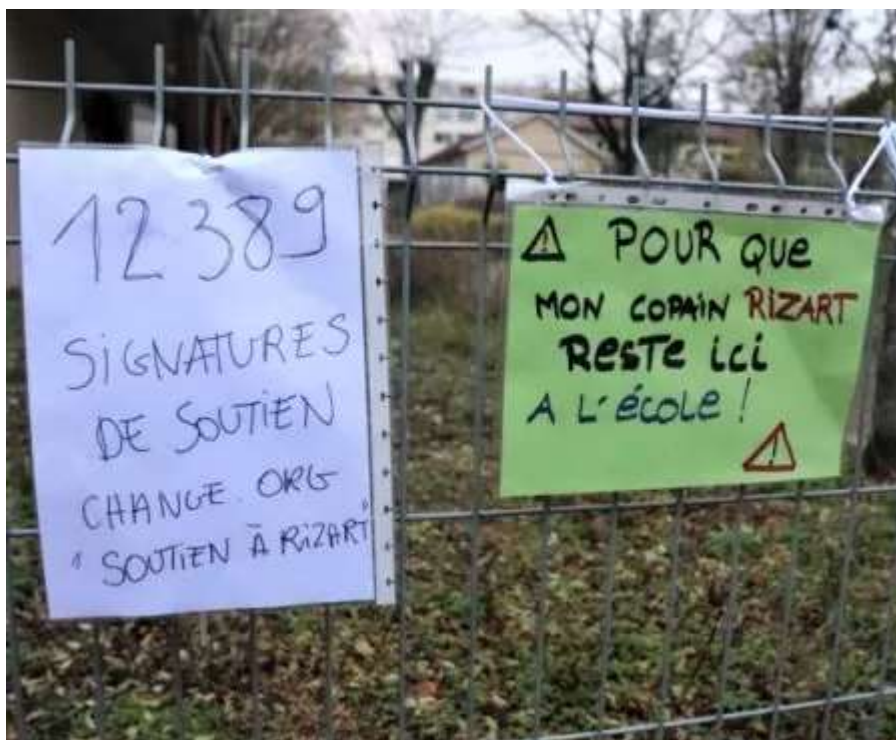 12 389
SIGNATURES
DE SOUTIEN
CHANGE.ORG
"SOUTIEN À RIZART"
POUR QUE
MON COPAIN RIZART
RESTE ici
A L'école !